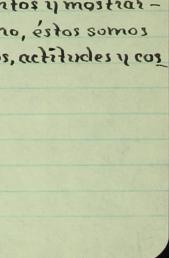 ntos y mostrar-
no, éstos somos
s, actitudes y cos_